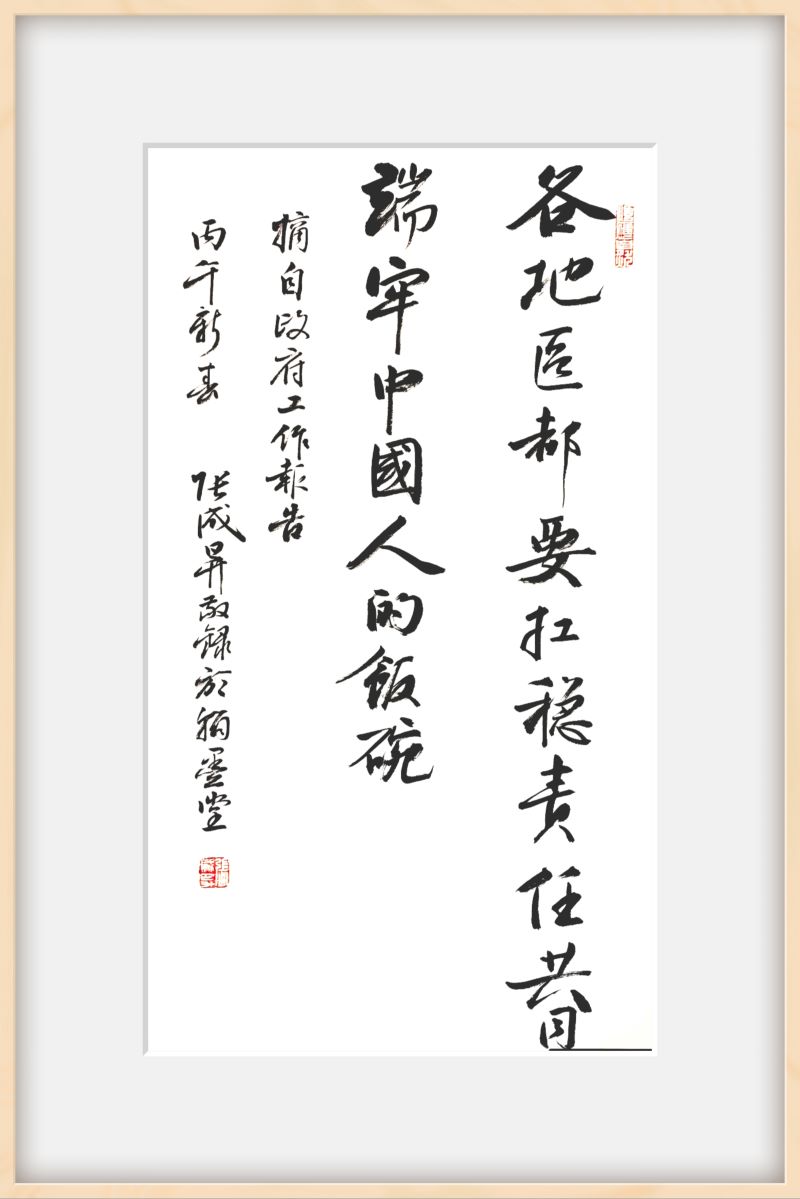 各地區都要扛稳责任共同
端牢中國人的飯碗
摘自政府工作報告
丙午新春 张成昇敬録於翰墨堂